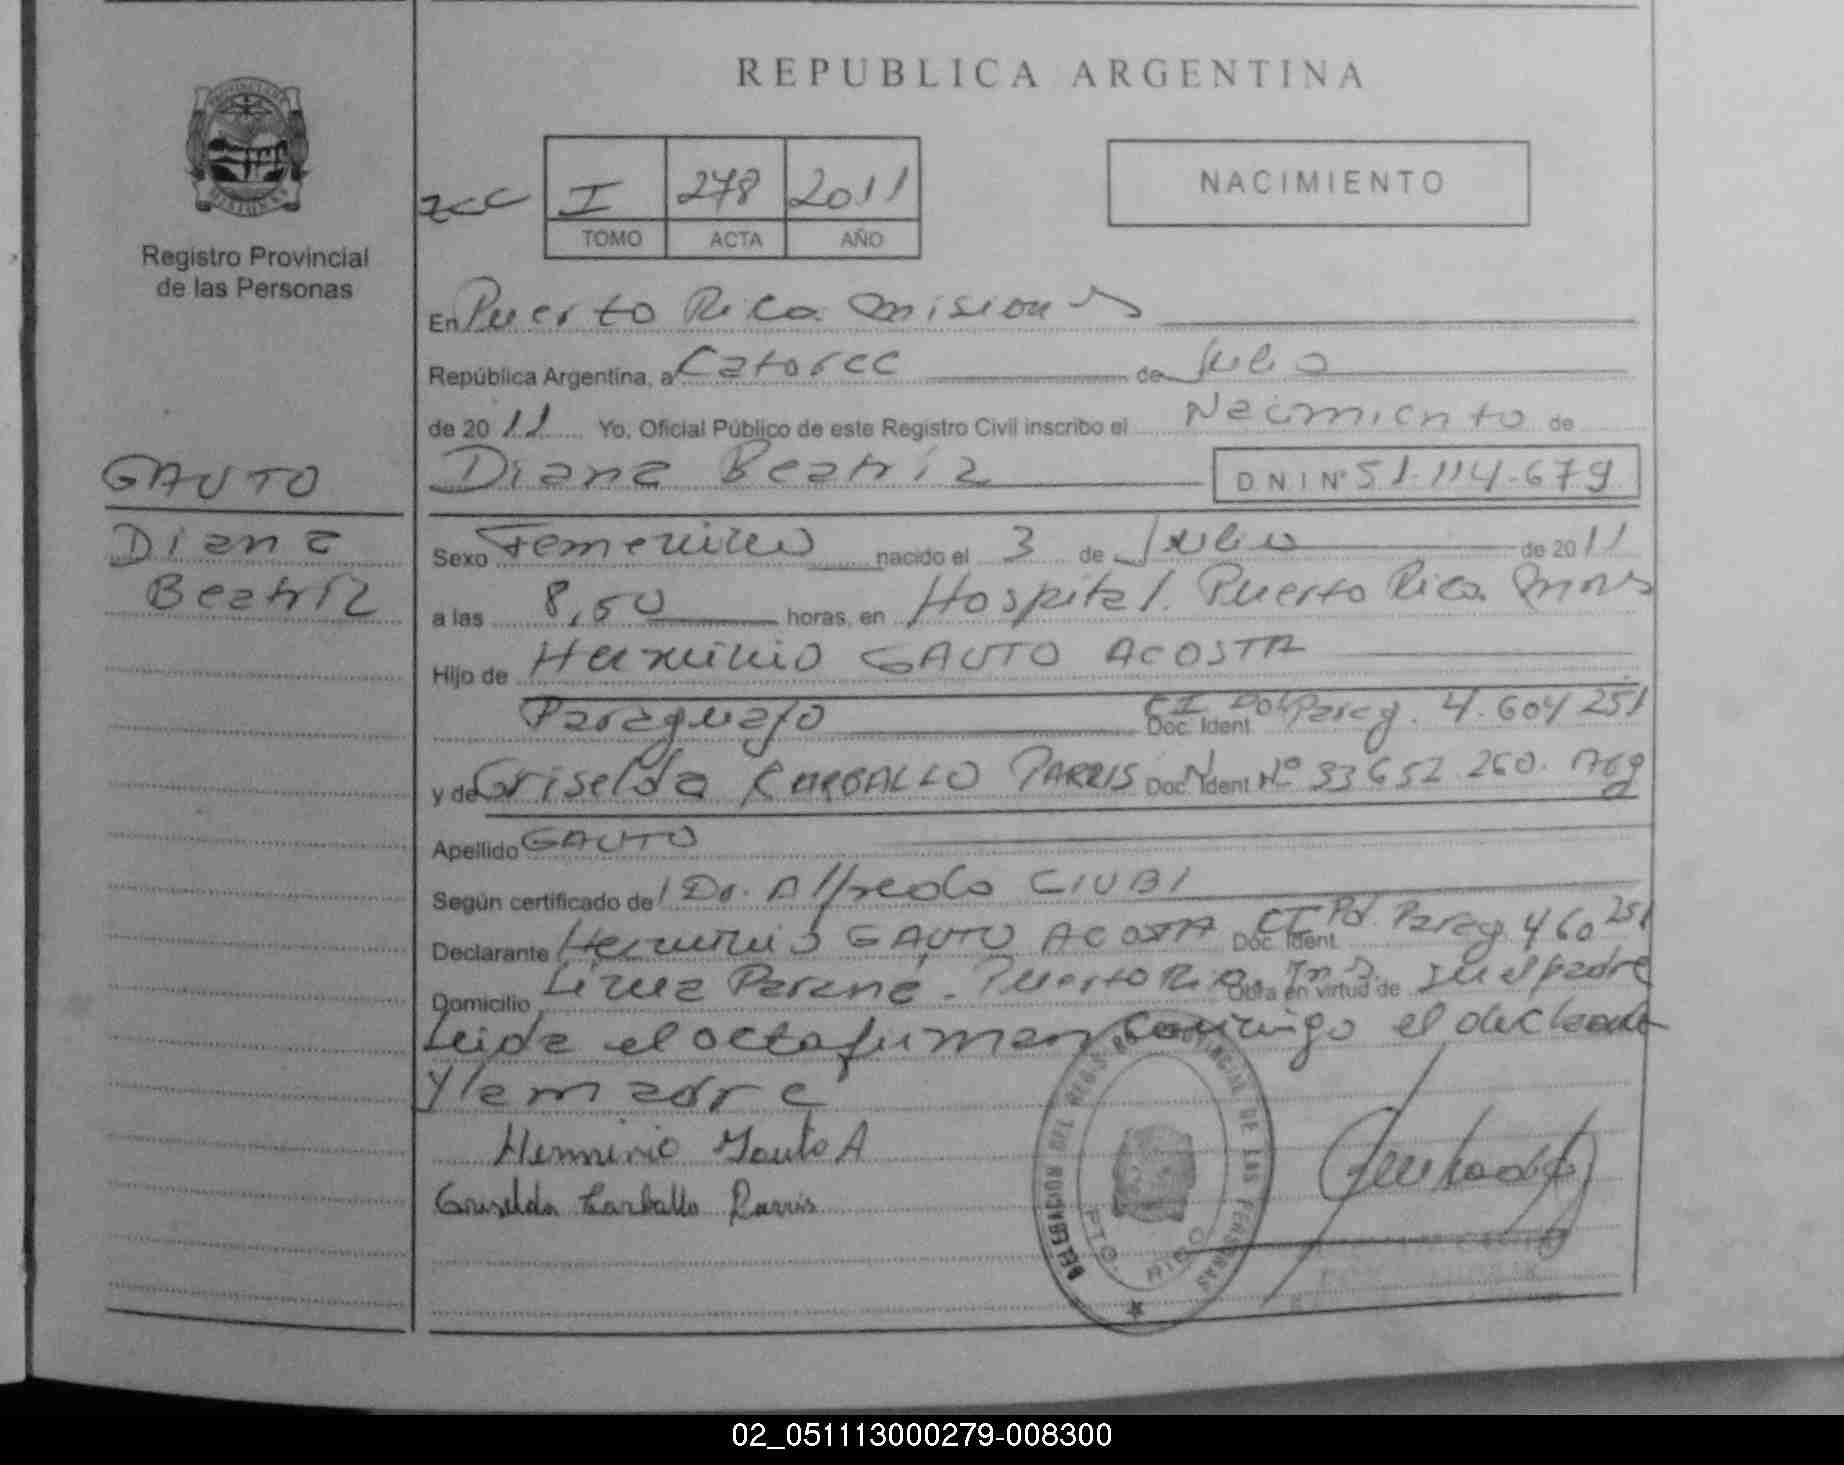 REPUBLICA ARGENTINA
NACIMIENTO
I 278 2011
TOMO ACTA AÑO
Registro Provincial
de las Personas
En Puerto Rico Misiones
República Argentina, a Catorce de Julio
de 2011 Yo, Oficial Público de este Registro Civil inscribo el Nacimiento de
GAUTO
Diana Beatríz DNI Nº 51.114.679
Diana
Beatríz
Sexo Femenino nacido el 3 de Julio de 2011
a las 8,50 horas, en Hospital. Puerto Rico Mnes
Hijo de Herminio GAUTO ACOSTA
Paraguayo Doc. Ident CI Pol Parag. 4.604 251
y de Griselda CARBALLO PARRIS Doc. Ident Nº 33652.260. Arg
Apellido GAUTO
Según certificado de Dr. Alfredo CIUBI
Declarante Herminio GAUTO ACOSTA Doc. Ident. CI Pol. Parag. 460 251
Domicilio Línea Paraná - Puerto Rico Obra en virtud de ser el padre
Leida el acta firman conmigo el declarante
y la madre
Herminio Gauto A
Griselda Carballo Parris
DELEGACION REGISTRO PROVINCIAL DE LAS PERSONAS
PTO. RICO
02_051113000279-008300